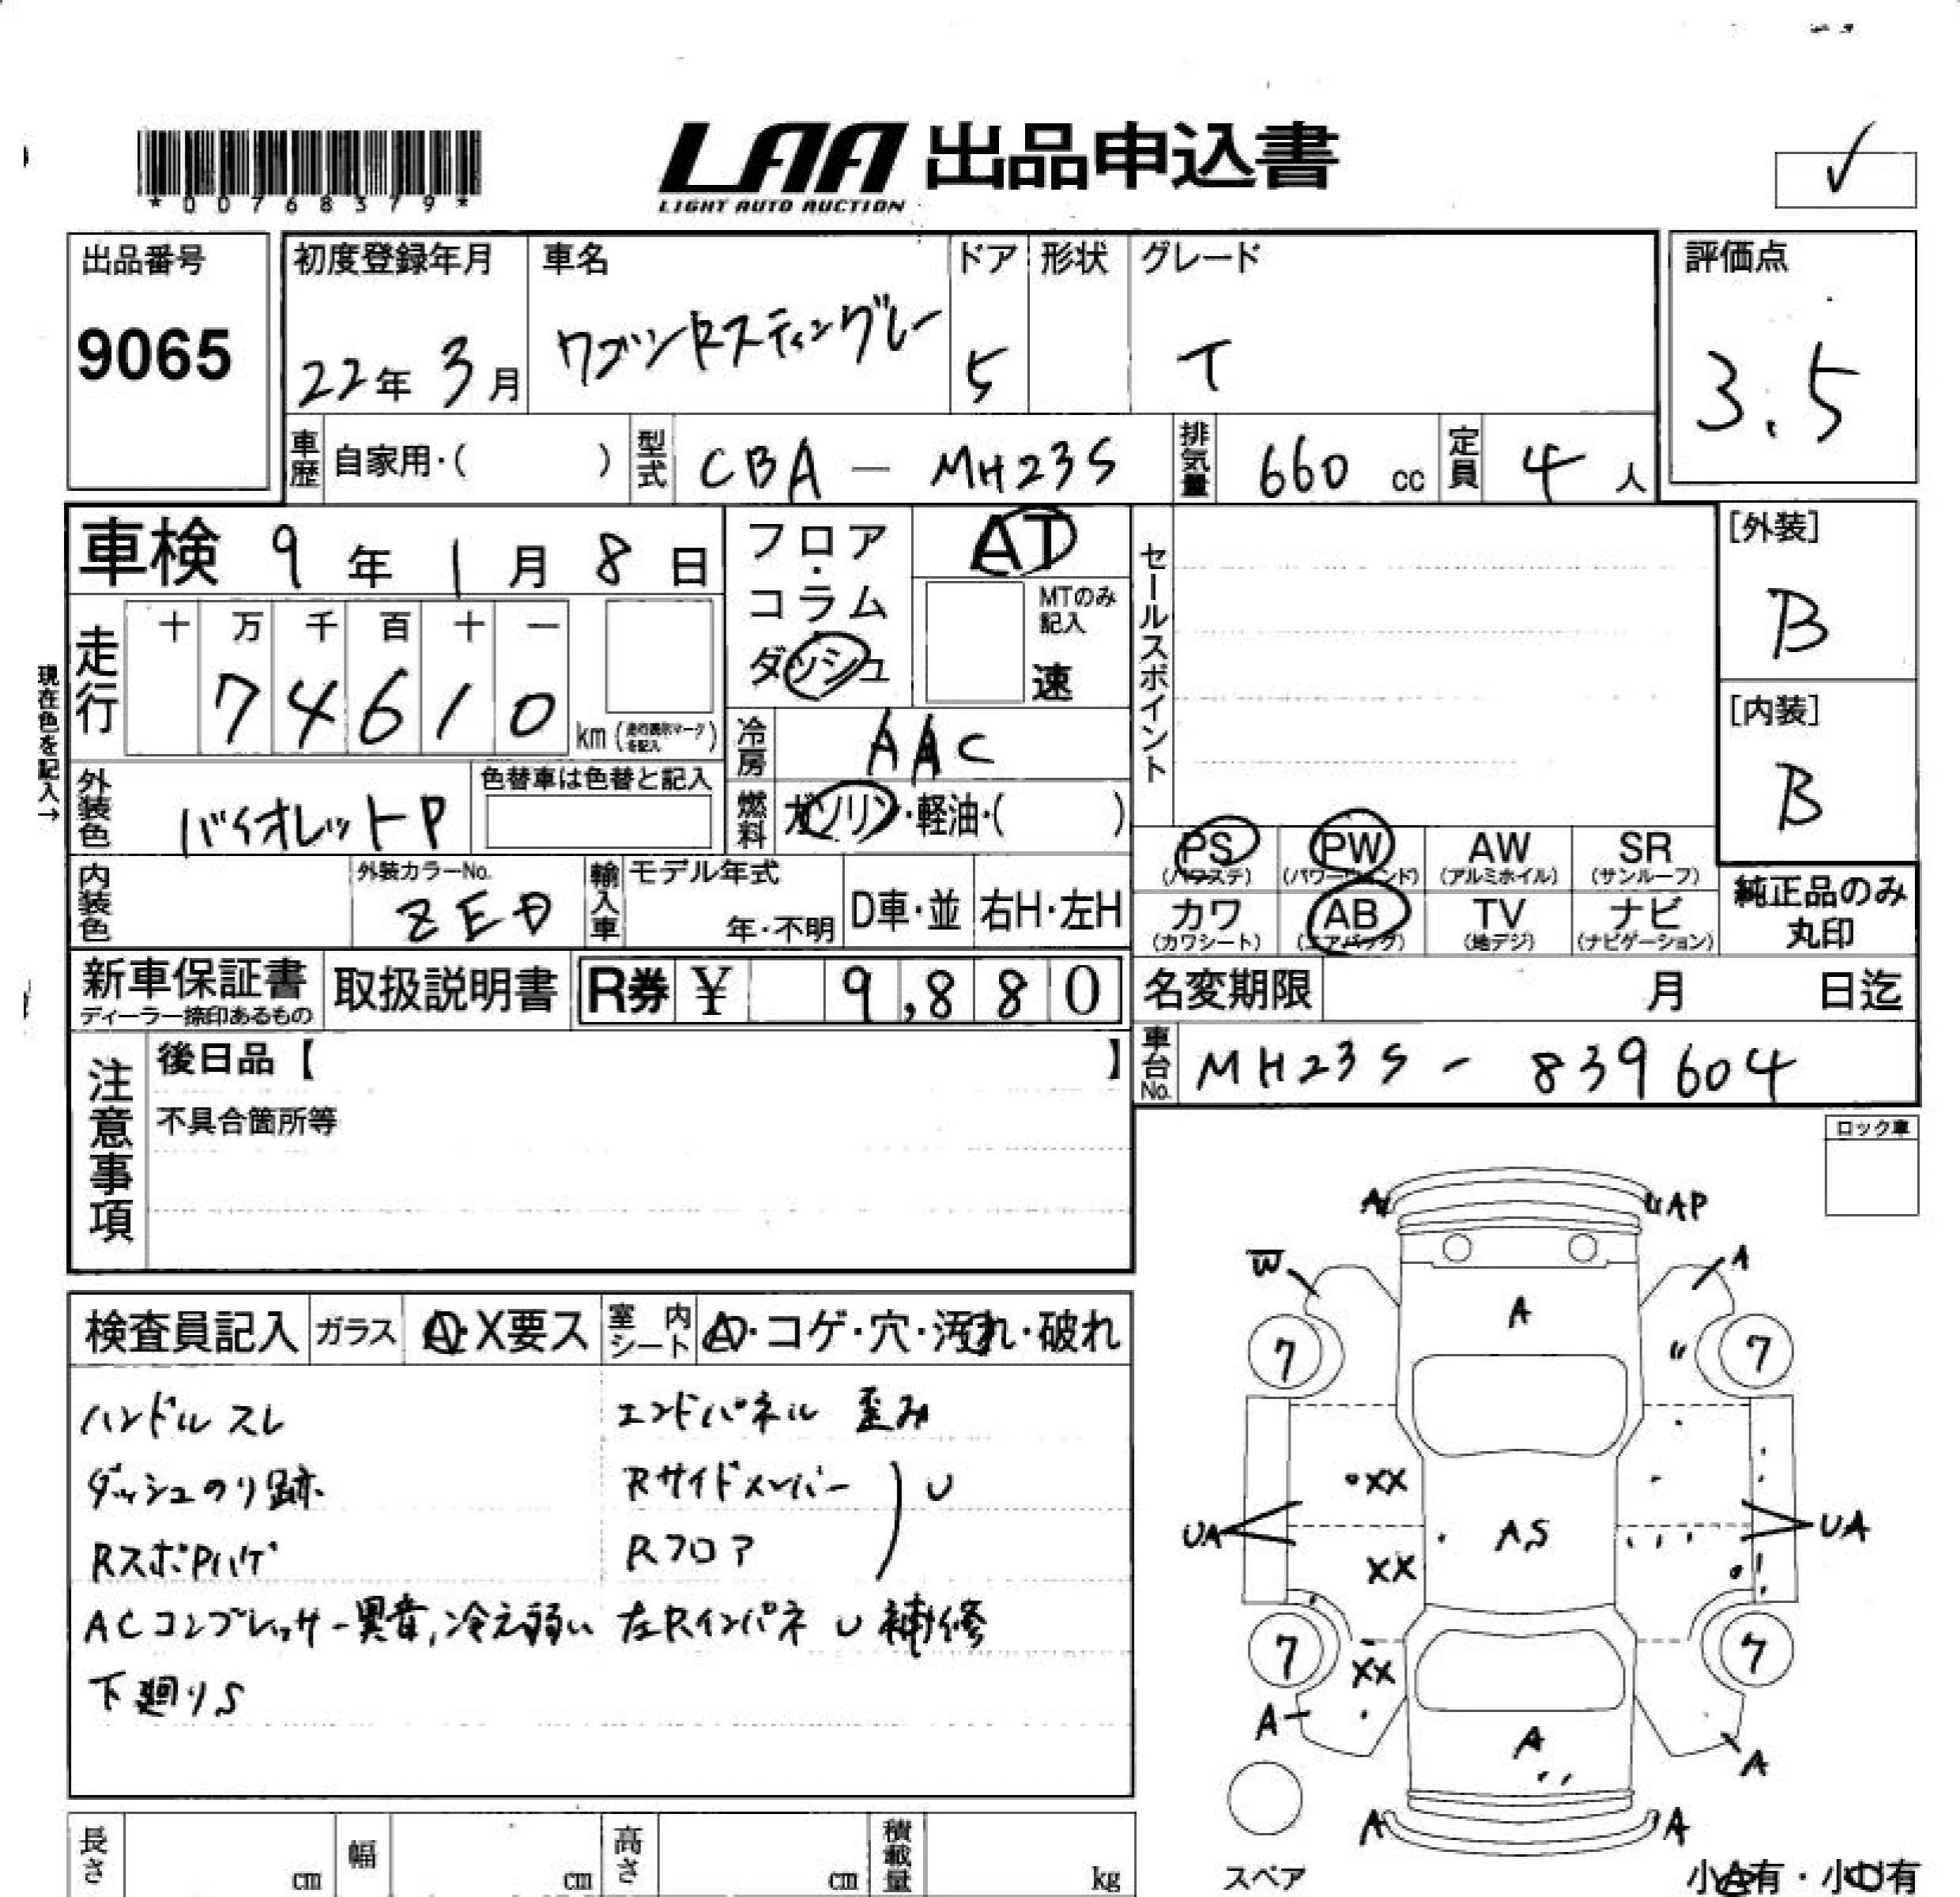 *00768379*
LAA 出品申込書
LIGHT AUTO AUCTION
✓
出品番号
9065
初度登録年月
22年 3月
車名
ワゴンRスティングレー
ドア
5
形状
グレード
T
評価点
3.5
車歴 自家用・( )
型式 CBA - MH23S
排気量 660 cc
定員 4 人
車検 9年 1月 8日
フロア・コラム
ダッシュ
AT
MTのみ記入
速
セールスポイント
[外装]
B
[内装]
B
現在色を記入→
走行
十 万 千 百 十 一
74610
km
冷房 AAC
燃料 ガソリン・軽油・( )
外装色 バイオレットP
色替車は色替と記入
PS
(パワステ)
PW
(パワーウインド)
AW
(アルミホイル)
SR
(サンルーフ)
カワ
(カワシート)
AB
(エアバック)
TV
(地デジ)
ナビ
(ナビゲーション)
純正品のみ
丸印
内装色
外装カラーNo.
ZED
輸入車
モデル年式
年・不明
D車・並
右H・左H
新車保証書
ディーラー捺印あるもの
取扱説明書
R券 ¥ 9,880
名変期限 月 日迄
車台No. MH23S - 839604
注意事項
後日品【 】
不具合箇所等
ロック車
検査員記入
ガラス A・X要ス
室内シート A・コゲ・穴・汚れ・破れ
ハンドルスレ
エンドパネル 歪み
ダッシュのり跡
Rサイドメンバー ) U
RスポPハゲ
Rフロア
ACコンプレッサー異音,冷え弱い
左Rインパネ U 補修
下廻りS
A
AP
W
A
A
7
7
XX
AS
UA
UA
XX
7
7
XX
A
A
A
A
A
スペア
小A有・小U有
長さ cm
幅 cm
高さ cm
積載量 kg